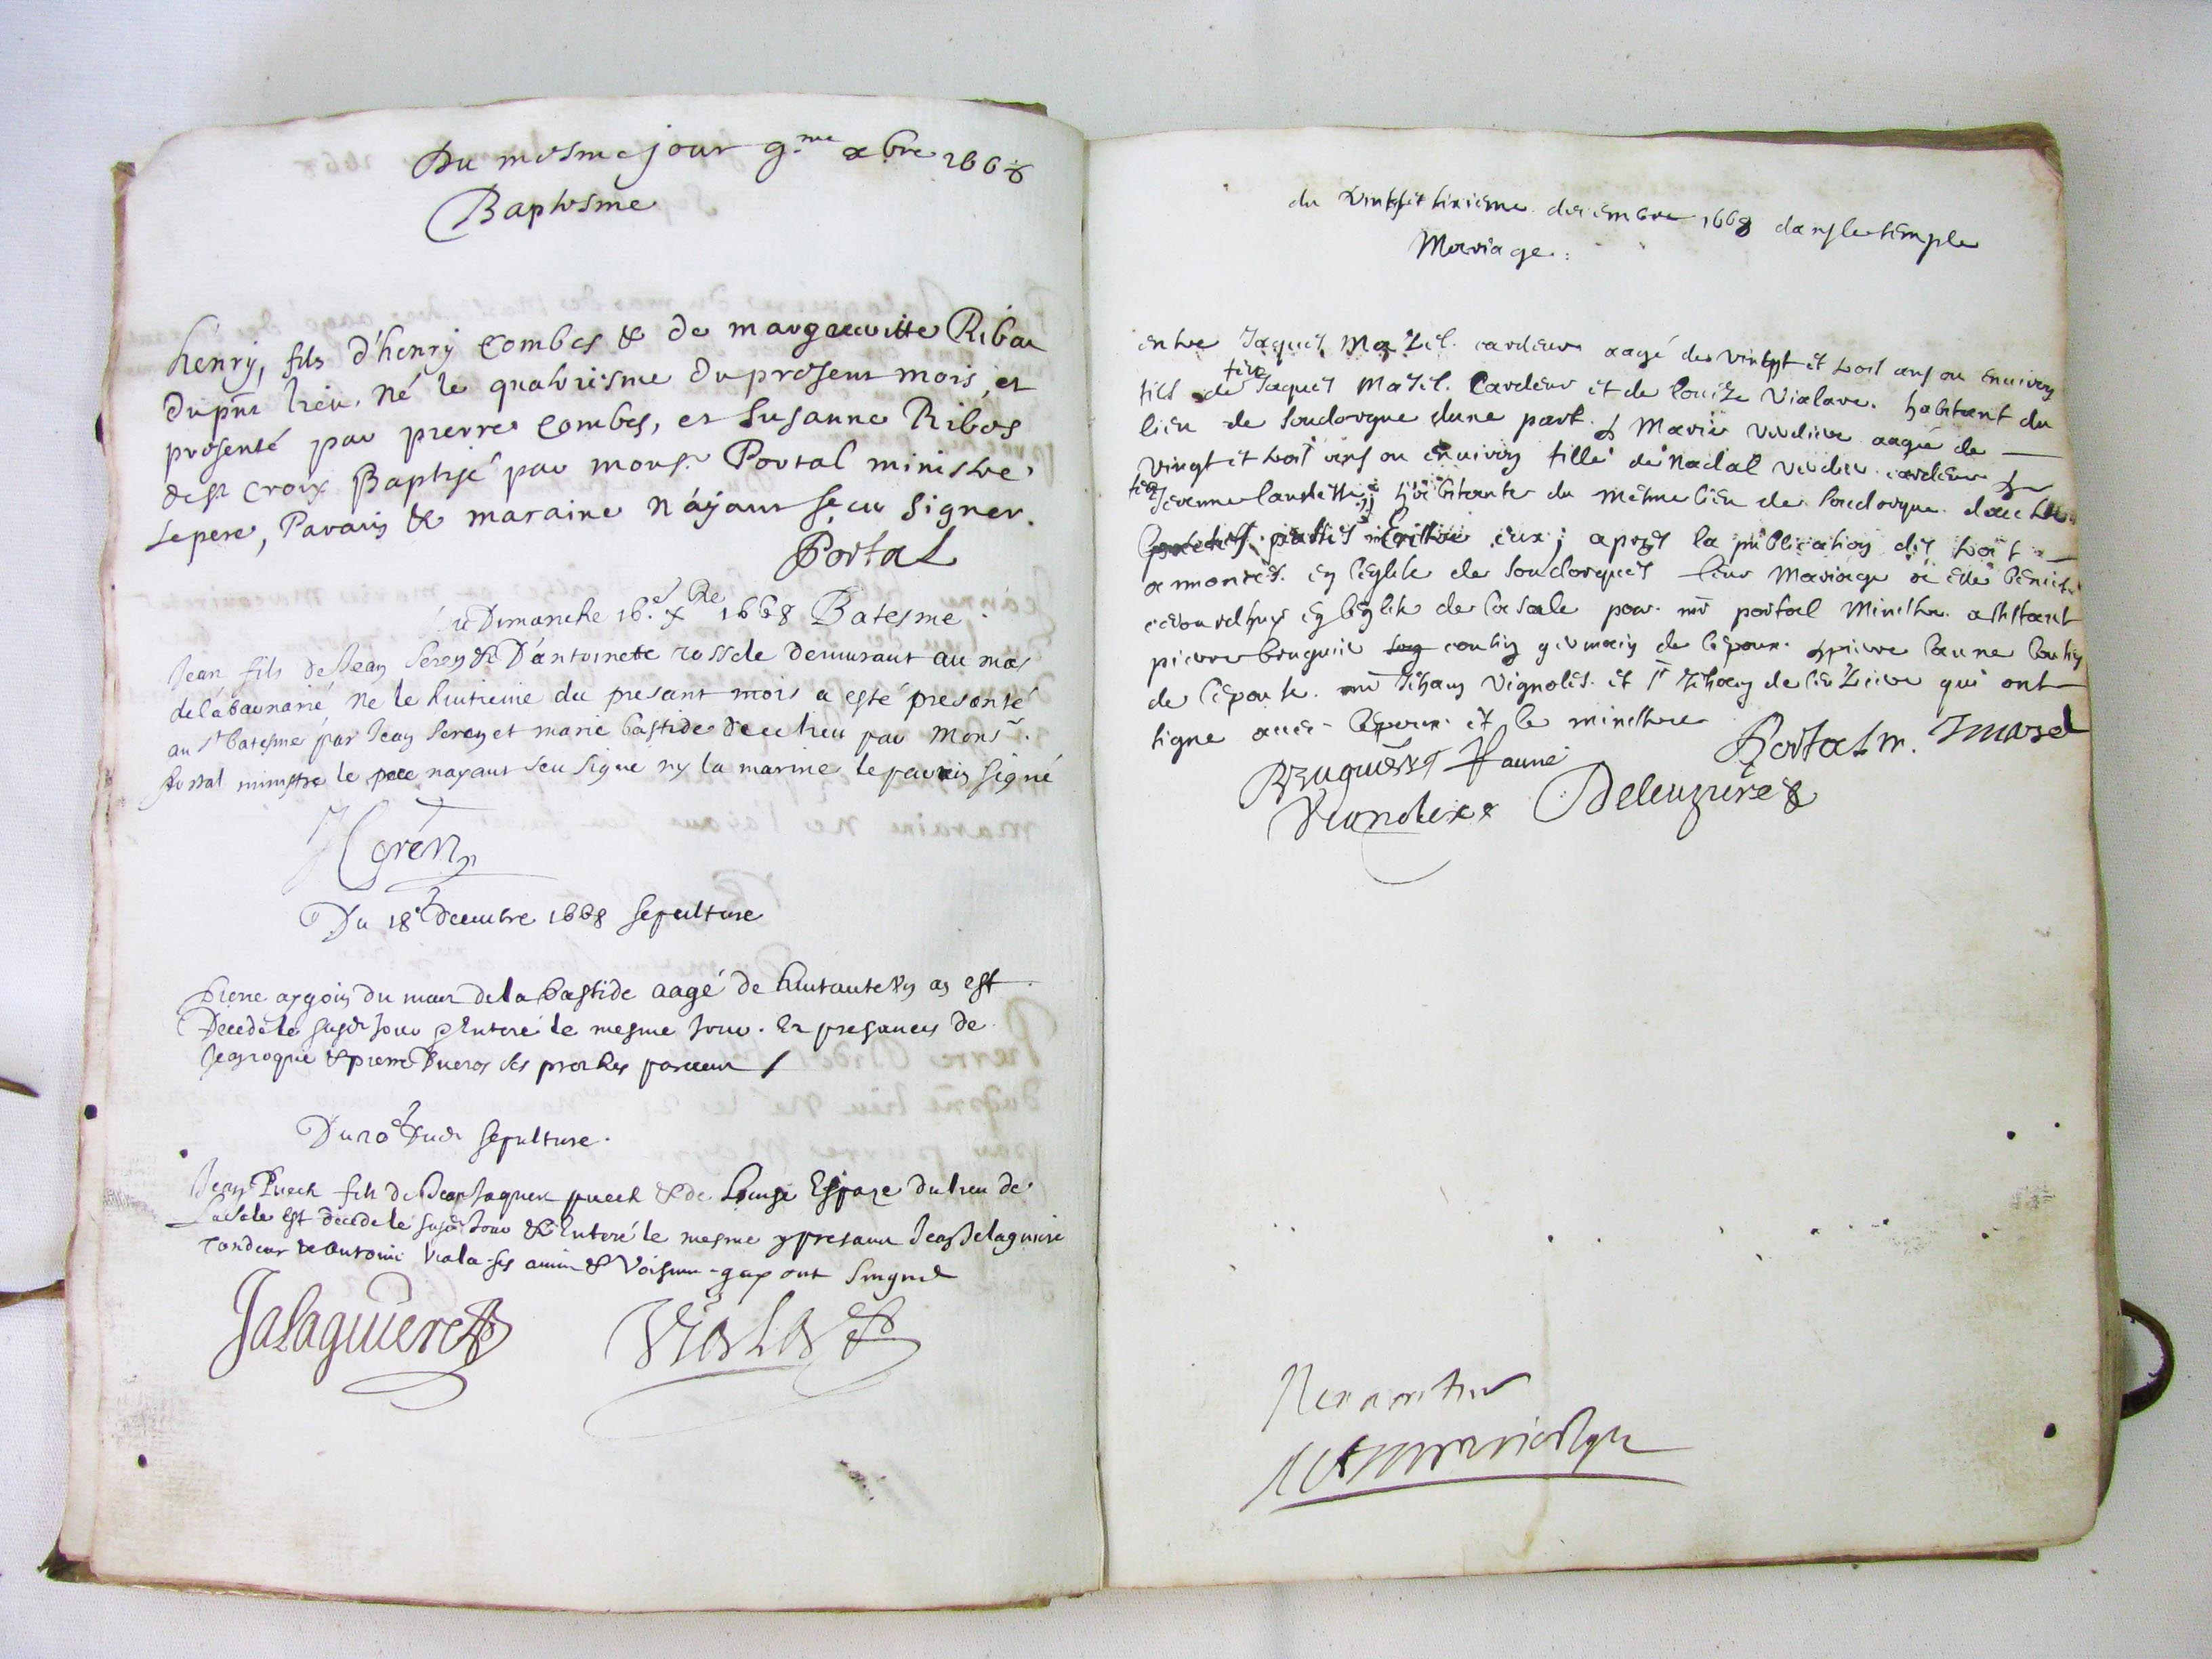 Du mesme jour 9.me xbre 1668
Baptesme
henry, fils d'henry Combes & de margueritte Ribou
Du pnt lieu. Né le quatriesme du present mois, et
presenté par pierre Combes, et Susanne Ribes
de St Croix Baptisé par mons.r Portal ministre
Le pere, Parain & maraine N'áyant sçeu Signer.
Portal
Du Dimanche 16.e Xbre 1668 Batesme.
Jean fils de Jean Seren & D'antoinette rossele demurant au mas
ne le huitieme du presant mois a esté presanté
au St batesme par Jean Seren et marie bastide de ce lieu par Monsr.
Portal ministre le pere nayant seu Signe ny la marine le parrin signé
Du 18e Decembre 1668 sepulture
Pierre du mas de la bastide aagé de huitante an est
Decedé le susdt jour & Enteré le mesme jour. En presances de
& pierre ses proches parans /
Du 20e Dudt sepulture.
Jean Puech fils de Jean Jaques puech & de Louise Espaze du lieu de
Lasale est decede le susdt jour & Enteré le mesme presans Jean Jalaguiere
Tondeur & Antoine Viala ses amis & voisins qui ont Singné
Jalaguiere
Viala
du vintset decembre 1668 dans le temple
Mariage.
entre Jaques Mazel. cardeur aagé de vintgt et trois ans ou enuiron
fils de feu Jaques Mazel. Cardeur et de louize Vialare. habitant du
lieu de Soudorgue dune part. & Marie Verdier aagée de
vingt et trois ans ou enuiron fille de Nadal verdier. cardeur &
feu Jeanne habitante du méme lieu de Soudorgue. dautre
parties eux; apres la publication des trois
annonces en leglise de Soudorgues leur Mariage a esté benist
ceiourdhuy en leglise de lasale par mr portal Ministre. assistant
pierre bruguier cousin germain de lepoux. & pierre laune cousin
de lepouse. mr Jehan Vignoles. et Sr Jehan deleuziere qui ont
signe auec lepoux et le ministre
Portal m. J mazel
Bruguiere Laune
Deleuzière